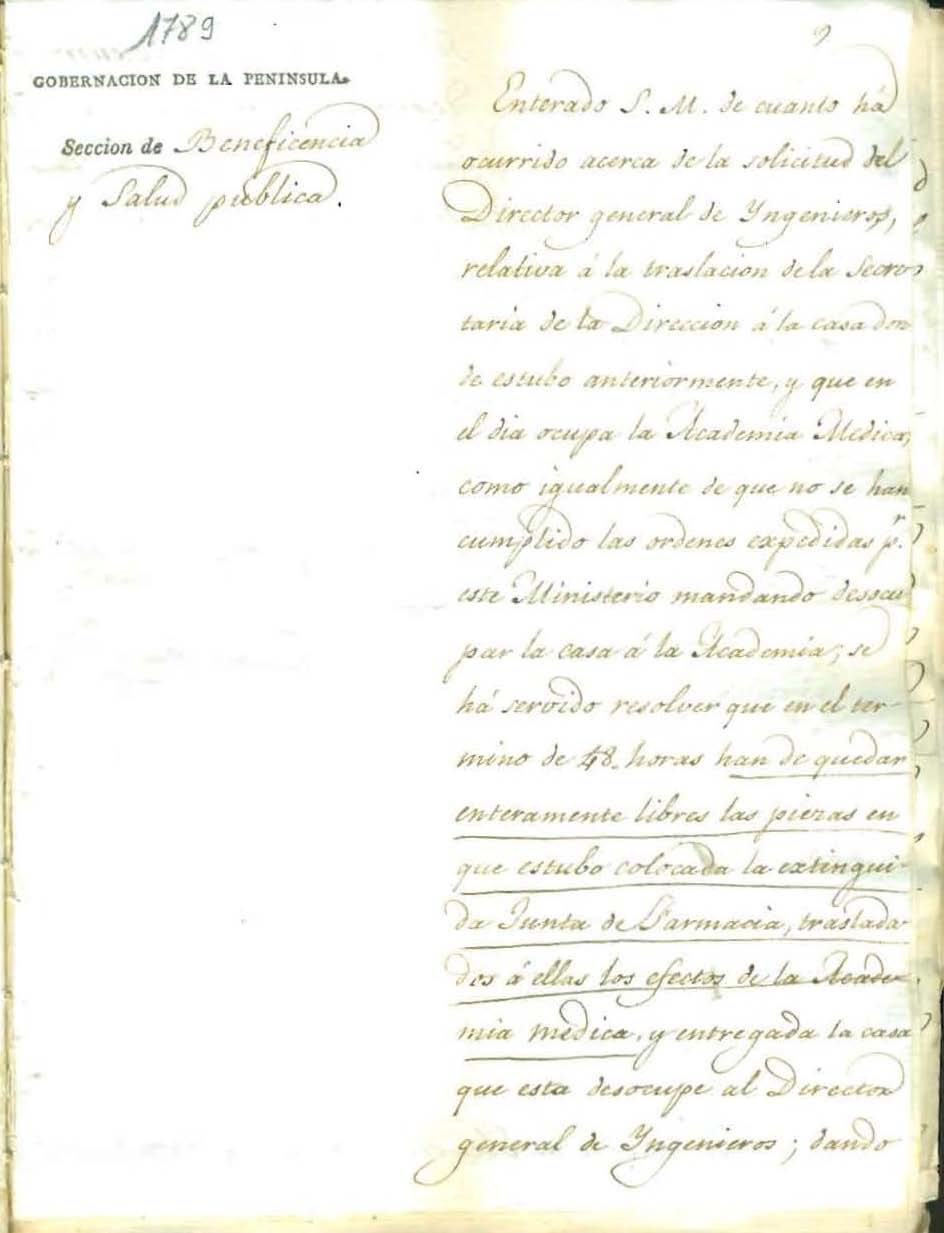 1789
9
GOBERNACION DE LA PENINSULA.
Seccion de Beneficencia
y Salud publica.
Enterado S. M. de cuanto há
ocurrido acerca de la solicitud del
Director general de Yngenieros,
relativa á la traslacion de la Secre
taria de la Direccion á la casa don
de estubo anteriormente, y que en
el dia ocupa la Academia Medica,
como igualmente de que no se han
cumplido las ordenes expedidas p.r
este Ministerio mandando desocu
par la casa á la Academia; se
há servido resolver que en el ter-
mino de 48. horas han de quedar
enteramente libres las piezas en
que estubo colocada la extingui-
da Junta de Farmacia, traslada-
dos á ellas los efectos de la Acade-
mia medica, y entregada la casa
que esta desocupe al Director
general de Yngenieros; dando